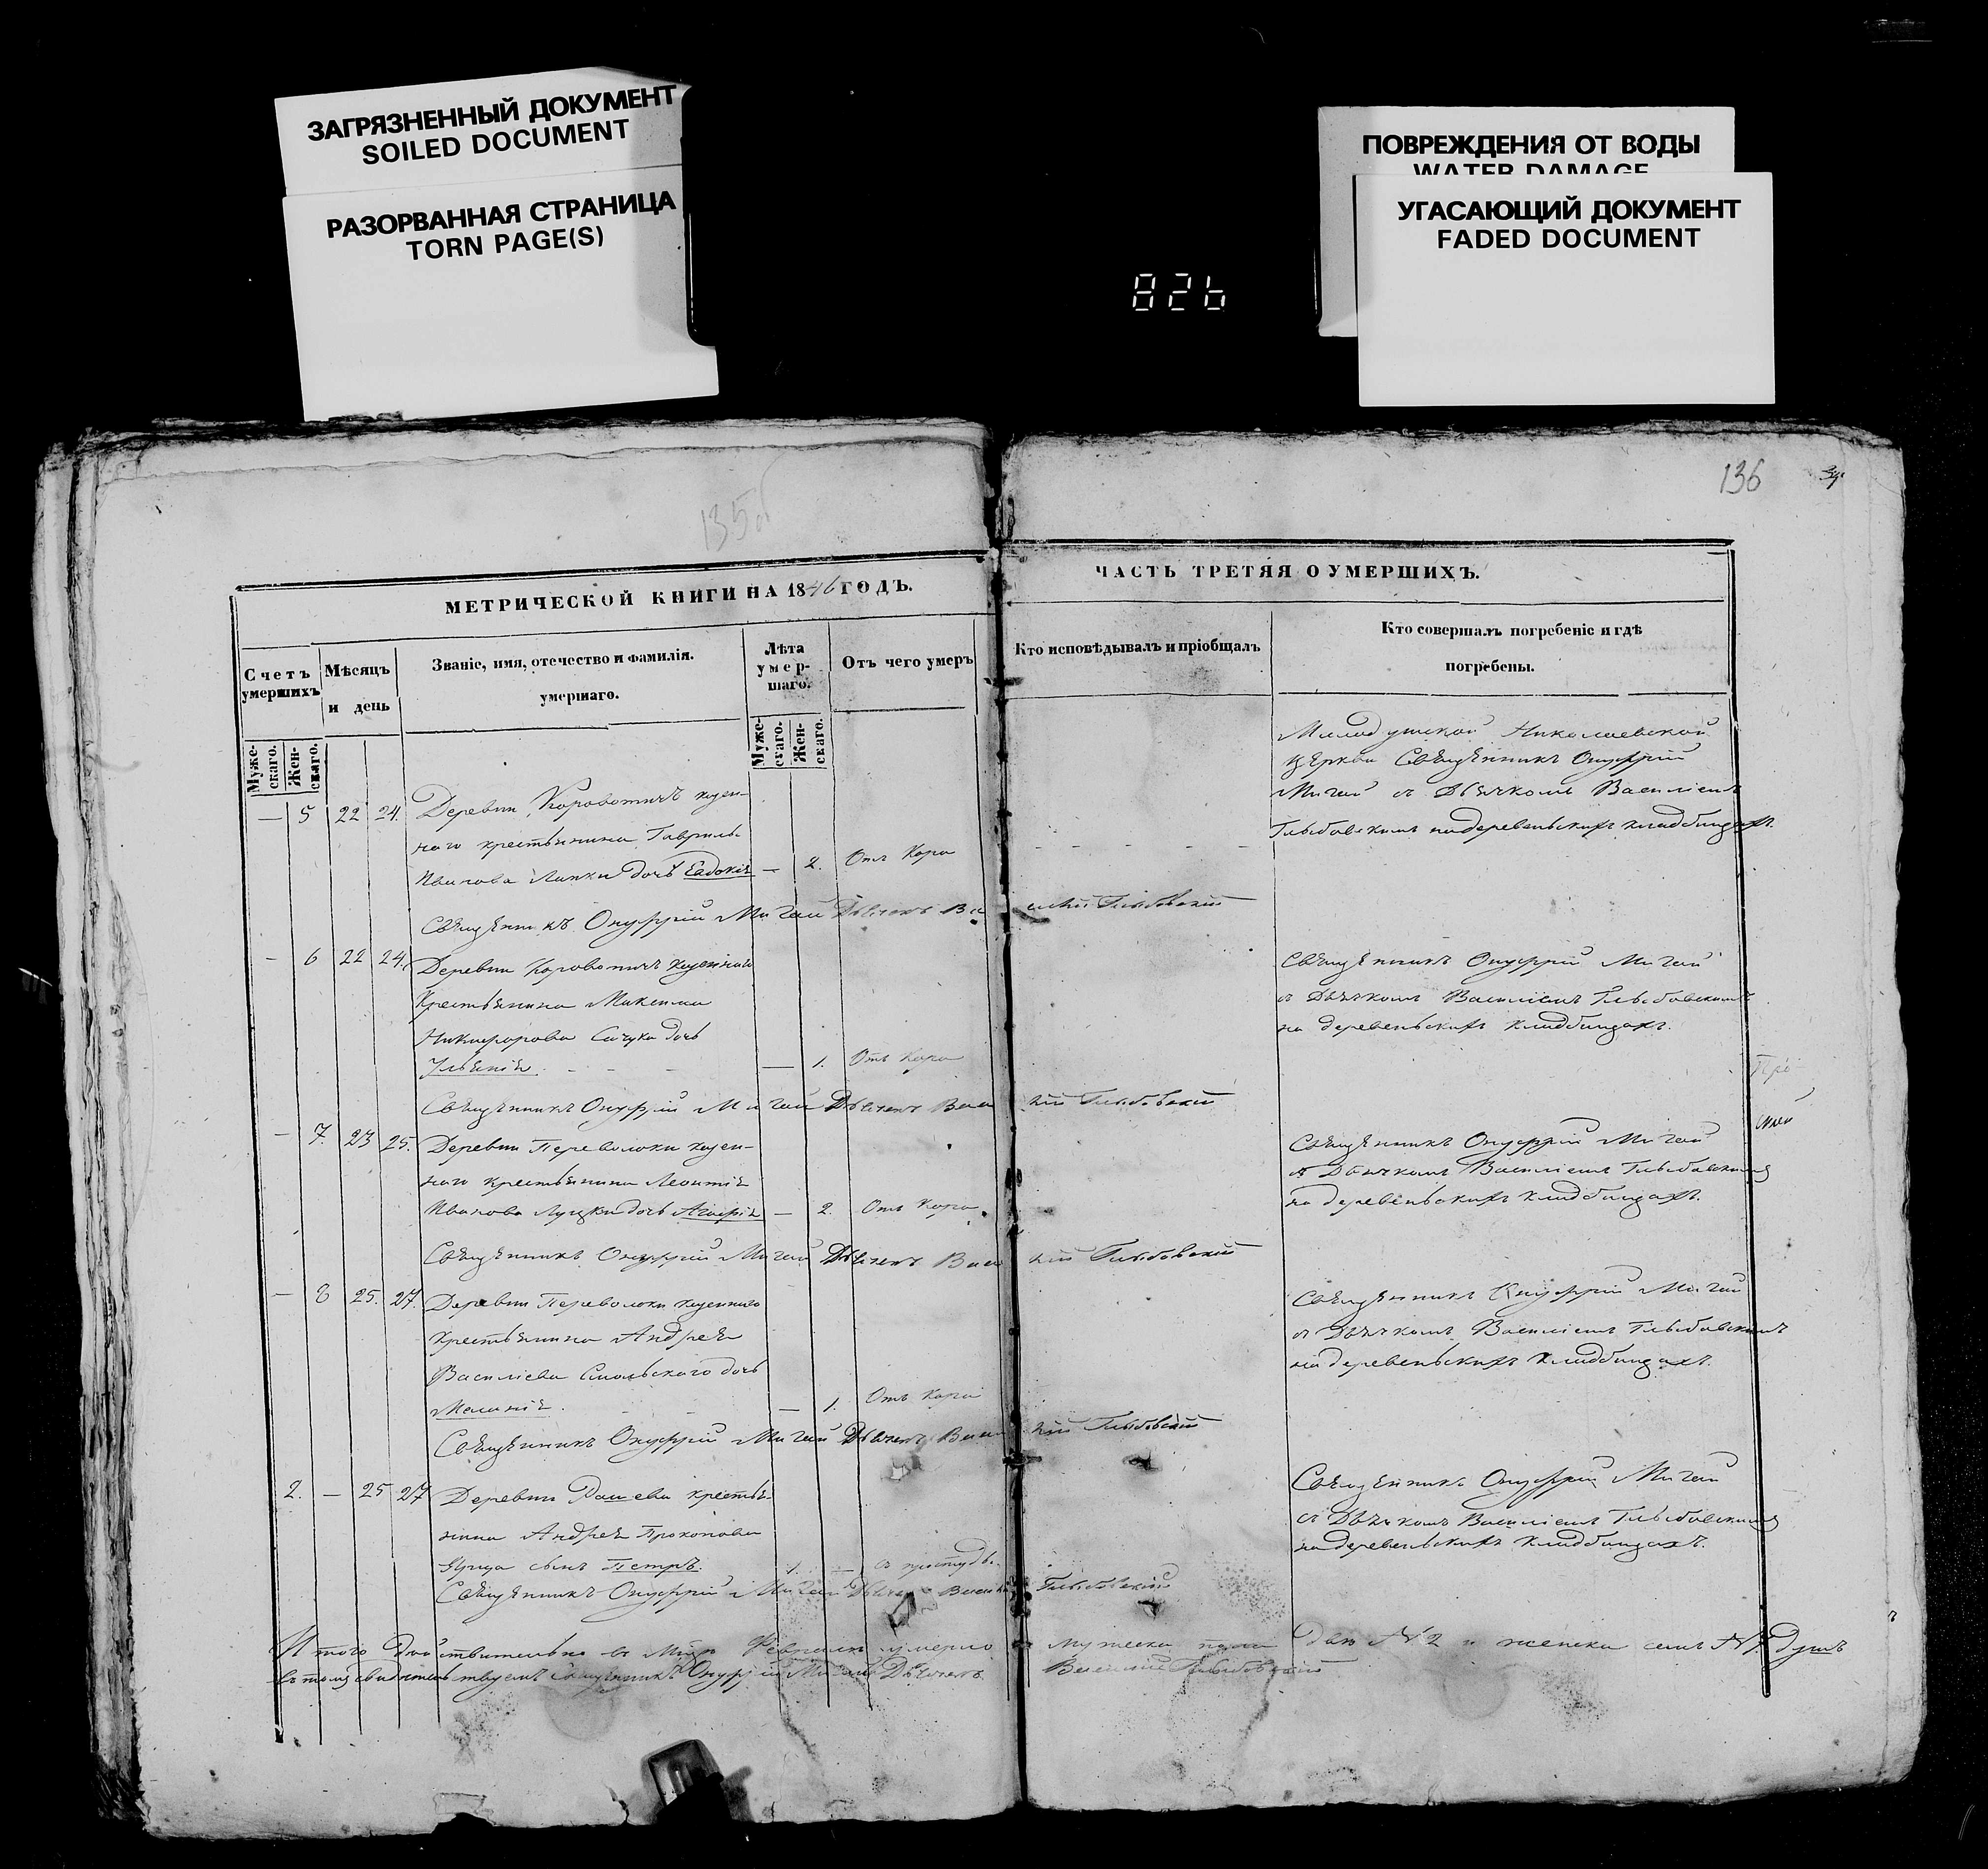 ЗАГРЯЗНЕННЫЙ ДОКУМЕНТ
SOILED DOCUMENT
РАЗОРВАННАЯ СТРАНИЦА
TORN PAGE(S)
ПОВРЕЖДЕНИЯ ОТ ВОДЫ
WATER DAMAGE
УГАСАЮЩИЙ ДОКУМЕНТ
FADED DOCUMENT
826
135об
136
МЕТРИЧЕСКОЙ КНИГИ НА 1846 ГОДЪ.
Счетъ умершихъ
Муже-скаго.
Жен-скаго.
Мѣсяцъ и день
Званіе, имя, отечество и фамилія.
умершаго.
Лѣта умер-шаго.
Муже-скаго.
Жен-скаго.
Отъ чего умеръ
ЧАСТЬ ТРЕТЯЯ О УМЕРШИХЪ.
Кто исповѣдывалъ и пріобщалъ
Кто совершалъ погребеніе и гдѣ
погребены.
Николаевской
церкви Священникъ Онуфрій
Мигай съ Дьячкомъ Василіемъ
Глыбовскимъ на деревенскихъ кладбищахъ.
— 5 22 24. Деревни Коровотичъ казен-
наго крестьянина Гавріила
Иванова Липки дочь Евдокія — 2. Отъ Кора
Священникъ Онуфрій Мигай Дьячекъ Василій Глыбовскій
— 6 22 24. Деревни Коровотичъ казеннаго
Крестьянина Максима
Никифорова дочь
Ульянія — 1. Отъ Кора
Священникъ Онуфрій Мигай
съ Дьячкомъ Василіемъ Глыбовскимъ
на деревенскихъ кладбищахъ.
Священникъ Онуфрій Мигай Дьячекъ Василій Глыбовскій
— 7. 23 25. Деревни Переволоки казен-
наго крестьянина Леонтія
Иванова дочь Агафія — 2. Отъ Кора
Священникъ Онуфрій Мигай
съ Дьячкомъ Василіемъ Глыбовскимъ
на деревенскихъ кладбищахъ.
Священникъ Онуфрій Мигай Дьячекъ Василій Глыбовскій
— 8 25. 27. Деревни Переволоки казеннаго
Крестьянина Андрея
Василіева Смольскаго дочь
Меланія. — 1. Отъ Кора
Священникъ Онуфрій Мигай
съ Дьячкомъ Василіемъ Глыбовскимъ
на деревенскихъ кладбищахъ.
Священникъ Онуфрій Мигай Дьячекъ Василій Глыбовскій
2. — 25 27 Деревни крестья-
нина Андрея Прокопова
сынъ Петръ. 1. — съ простуды.
Священникъ Онуфрій Мигай
съ Дьячкомъ Василіемъ Глыбовскимъ
на деревенскихъ кладбищахъ.
Священникъ Онуфрій Мигай Дьячекъ Василій Глыбовскій
Итого Действительно въ Февралѣ умерло мужеска пола два №2 и женска семь №7. Душъ
въ томъ свидѣтельствуемъ Священникъ Онуфрій Мигай Дьячекъ Василій Глыбовскій